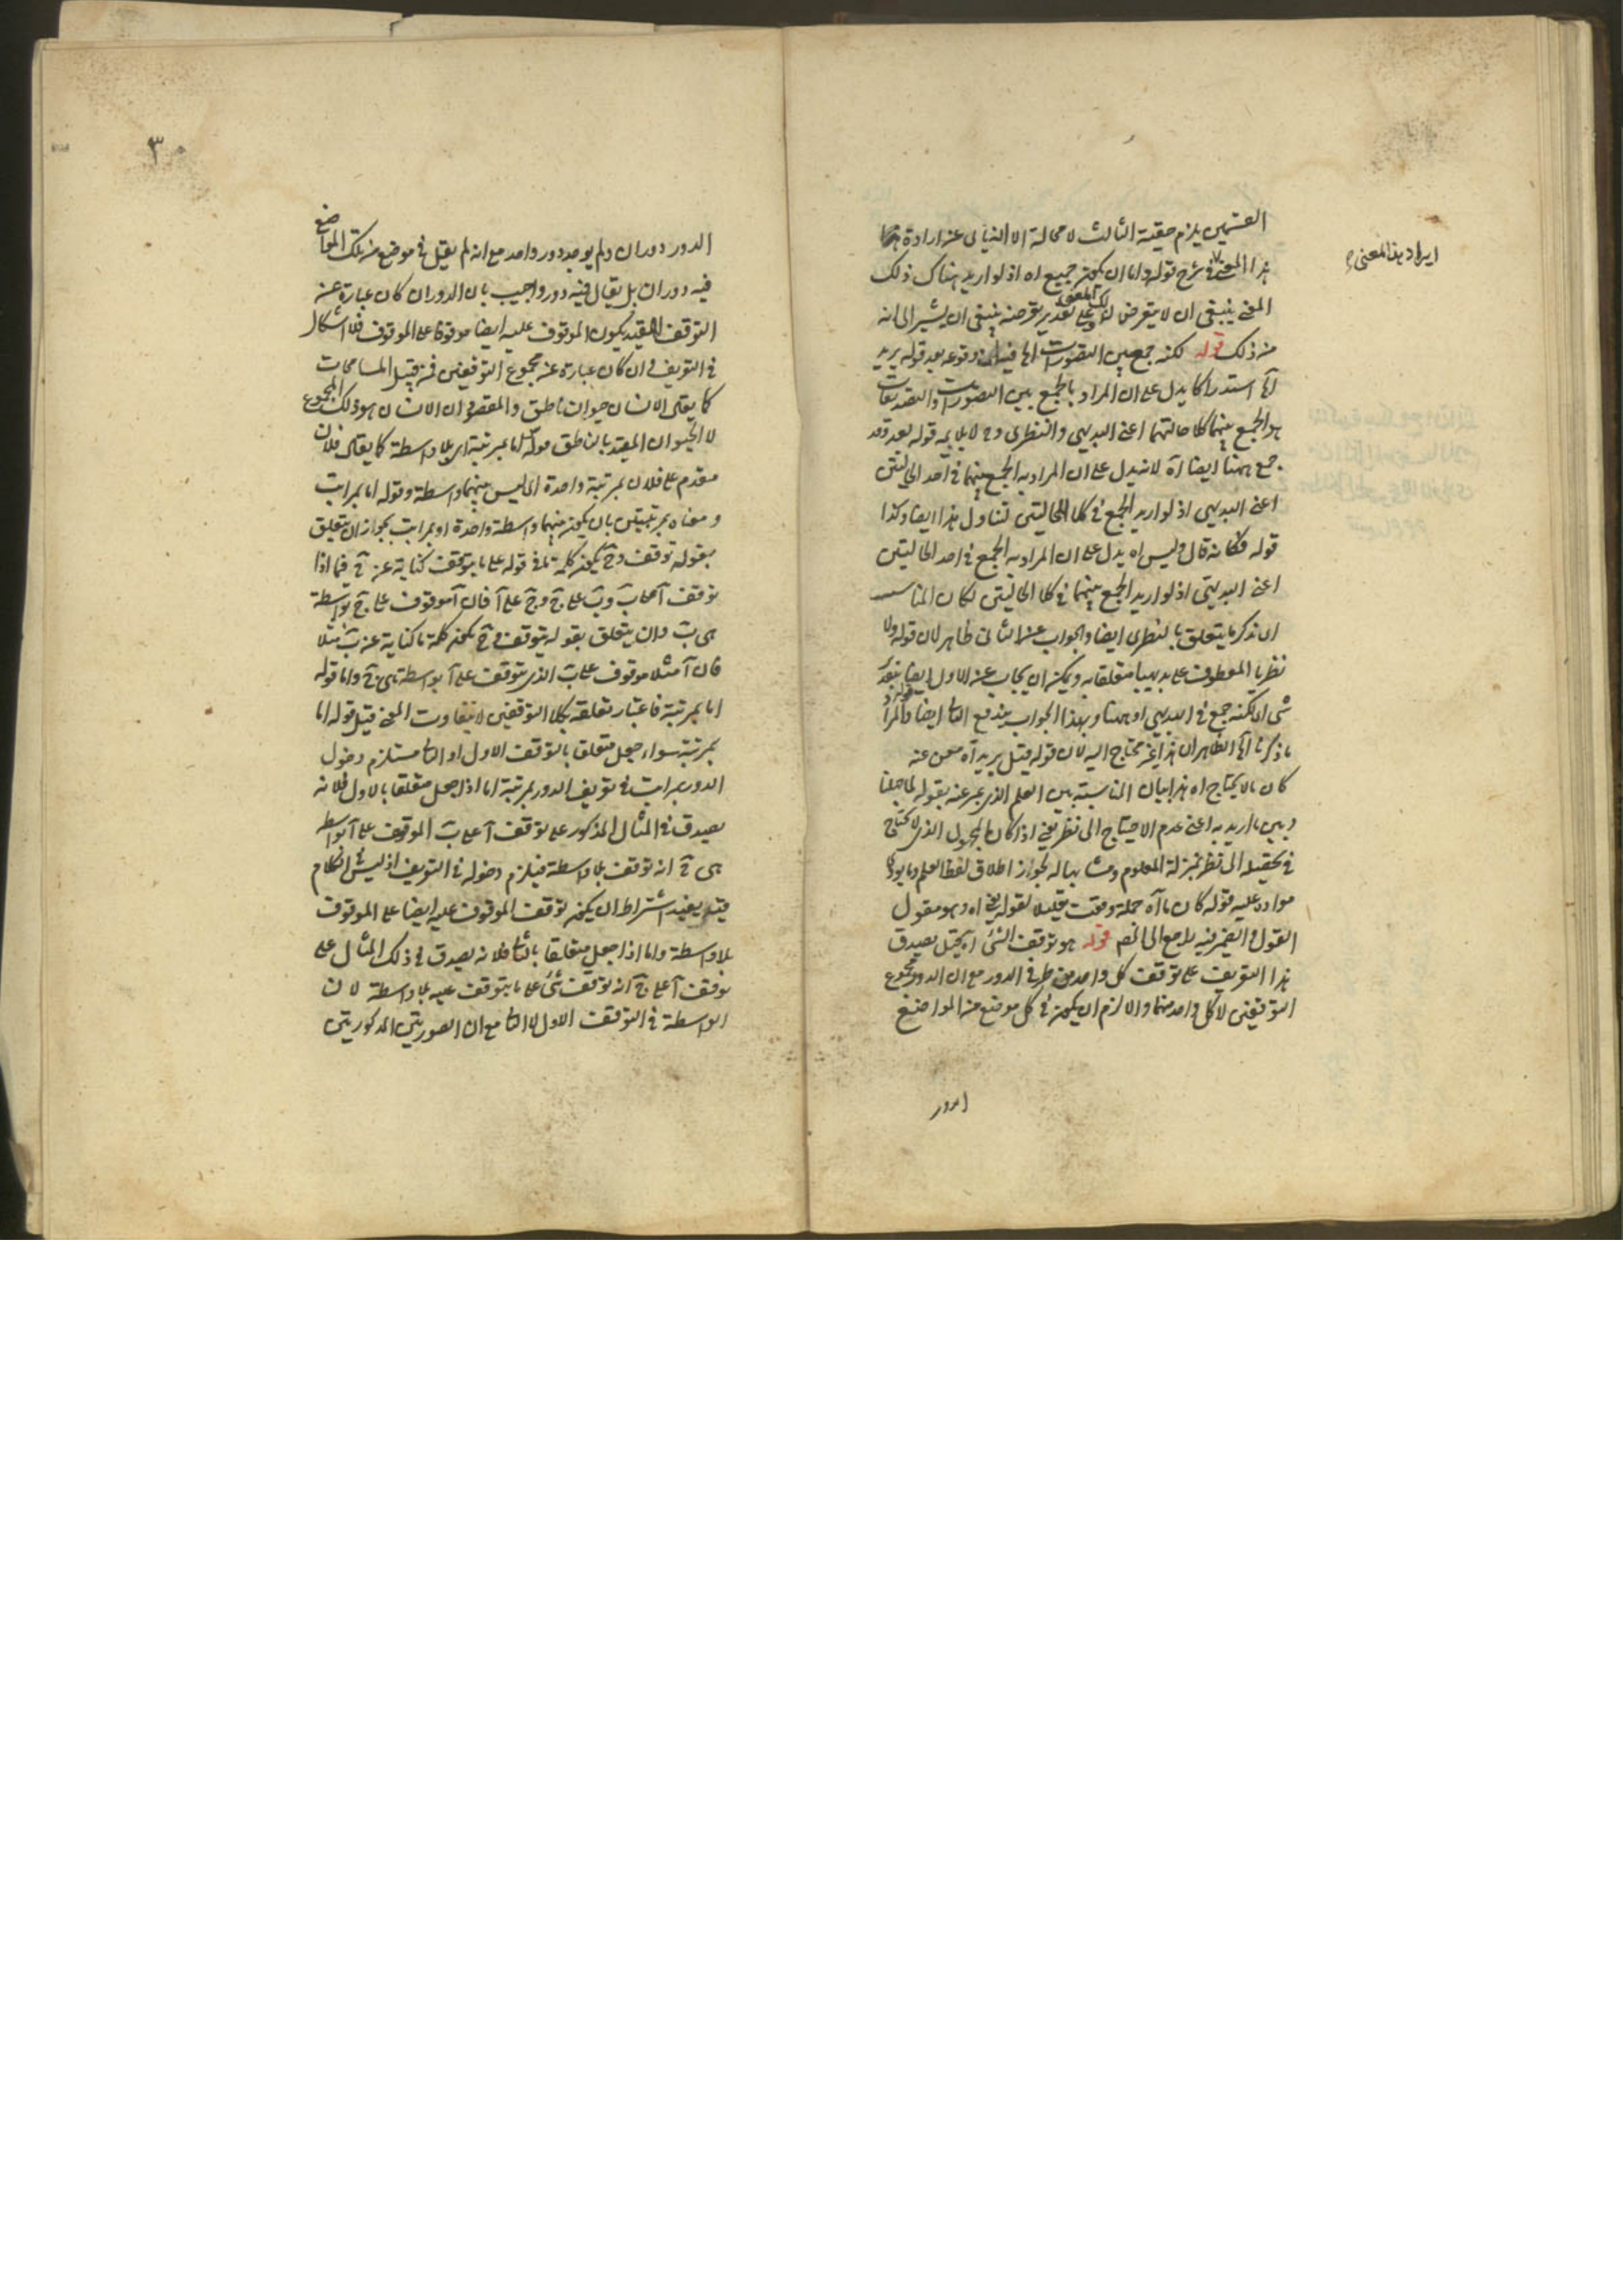 القسمين يلزم حقية الثالث لا محالة الا الثاني عند ارادة
هذا المعنى في شرح قوله واما ان يكون جميع اه اذ لو اريد هناك ذلك
المعنى ينبغي ان لا يتعرض لذلك المعنى وعلى تقدير تعرضه ينبغي ان يشير الى انه
من ذلك قوله لكنه جمع بين التصورات وقوعه بعد قوله يريد
اه استدراكا يدل على ان المراد بالجمع بين التصورات والتصديقات
هو الجمع بينهما كلا حالتهما اعني البديهي والنظري وح لا يلايمه قوله بعد وقد
جمع ههنا ايضا اه لانه يدل على ان المراد به الجمع بينهما في احد الحالتين
اعني البديهي اذ لو اريد الجمع في كلتا الحالتين لتناول هذا ايضا وكذا
قوله فكانه قال وليس اه يدل على ان المراد به الجمع في احد الحالتين
اعني البديهي اذ لو اريد الجمع بينهما في كلتا الحالتين لكان المناسب
ان يذكر ما يتعلق بالنظري ايضا والجواب عن الثاني ظاهر لان قوله ولا
نظريا المعطوف على بديهيا متعلقا به ويمكن ان يجاب عن الاول ايضا بتقدير
شئ اي لكنه جمع في البديهي او ههنا وبهذا الجواب يندفع الثاني ايضا
ما ذكرنا اه الظاهر ان هذا غير محتاج اليه لان قوله قبل يريد اه مغن عنه
كان ما لا يحتاج اه هذا بيان المناسبة بين العلم الذي عبر عنه بقوله
وبين ما اريد به اعني عدم الاحتياج الى نظر يعني اذا كان المجهول الذي لا يحتاج
في تحصيله الى نظر بمنزلة المعلوم ومشابها له يجوز اطلاق لفظ العلم وما يؤدي
مواده عليه قوله كان ما اه جملة وقعت تعليلا لقوله يعني اه وهو مقول
القول والضمير فيه راجع الى المصـ قوله هو توقف الشئ اه قيل يصدق
هذا التعريف على توقف كل واحد من طرفي الدور مع ان الدور مجموع
التوقفين لا كل واحد منهما والا لزم ان يكون في كل موضع من المواضع
الدور
ايراد هذا المعنى
٣٠
الدور دوران ولم يوجد دور واحد مع انه لم يقل في موضع من تلك المواضع
فيه دوران بل يقال فيه دور واجيب بان الدور ان كان عبارة عن
التوقف المقيد بكون الموقوف عليه ايضا موقوفا على الموقوف فلا اشكال
في التعريف وان كان عبارة عن مجموع التوقفين فمن قبيل المسامحات
كما يقال الانسان حيوان ناطق والمقصود ان الانسان هو ذلك المجموع
لا الحيوان المقيد بالناطق قوله اما بمرتبة اي بلا واسطة كما يقال فلان
مقدم على فلان بمرتبة واحدة اي ليس بينهما واسطة وقوله اما بمراتب
ومعناه بمرتبتين بان يكون بينهما واسطة واحدة او بمراتب يجوز ان يتعلق
بقوله توقف وح يكون كلمة ما في قوله على ما يتوقف كناية عن ج فيما اذا
توقف آ على ب وب على ج وج على آ فان آ موقوف على ج بواسطة
هي ب وان يتعلق بقوله يتوقف وح يكون كلمة ما كناية عن ب مثلا
فان آ مثلا موقوف على ب الذي يتوقف على آ بواسطة هي ج واما قوله
اما بمرتبة فاعتبار تعلقه بكلا التوقفين لا يتفاوت المعنى قيل قوله اما
بمرتبة سواء جعل متعلقا بالتوقف الاول او الثاني مستلزم دخول
الدور بمراتب في تعريف الدور بمرتبة اما اذا جعل متعلقا بالاول فلانه
يصدق في المثال المذكور على توقف آ على ب الموقوف على آ بواسطة
هي ج انه توقف بلا واسطة فيلزم دخوله في التعريف اذ ليس في الكلام
قيد يفيد اشتراط ان يكون توقف الموقوف عليه ايضا على الموقوف
بلا واسطة واما اذا جعل متعلقا بالثاني فلانه يصدق في ذلك المثال على
توقف آ على ج انه توقف شئ على ما يتوقف عليه بلا واسطة لان
الواسطة في التوقف الاول لا الثاني مع ان الصورتين المذكورتين